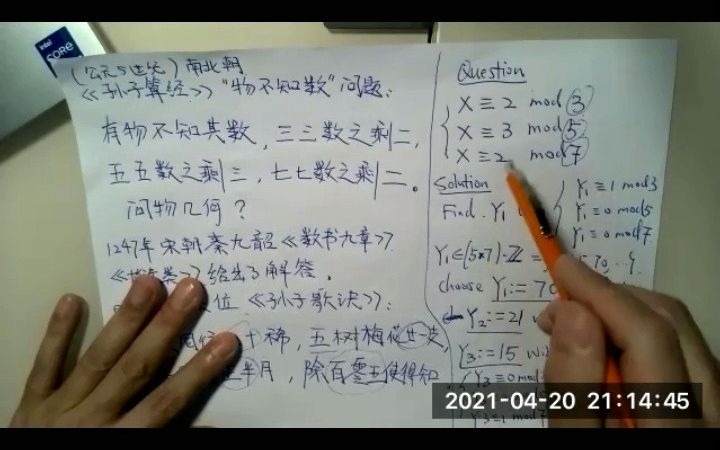 intel
CORE
(公元5世纪) 南北朝
《孙子算经》"物不知数"问题:
有物不知其数,三三数之剩二,
五五数之剩三,七七数之剩二。
问物几何?
1247年 宋朝 秦九韶《数书九章》
给出了解答。
位《孙子歌诀》:
十稀,五树梅花廿一支,
半月,除百零五使得知
Question
X ≡ 2 mod 3
X ≡ 3 mod 5
X ≡ 2 mod 7
Solution
Find Y₁
Y₁ ≡ 1 mod 3
Y₁ ≡ 0 mod 5
Y₁ ≡ 0 mod 7
Y₁∈(5*7)·ℤ =
choose Y₁:= 70
Y₂:=21
Y₃:=15 wit
Y₃ ≡ 0 mod
Y₃≡1 mod 7
2021-04-20 21:14:45